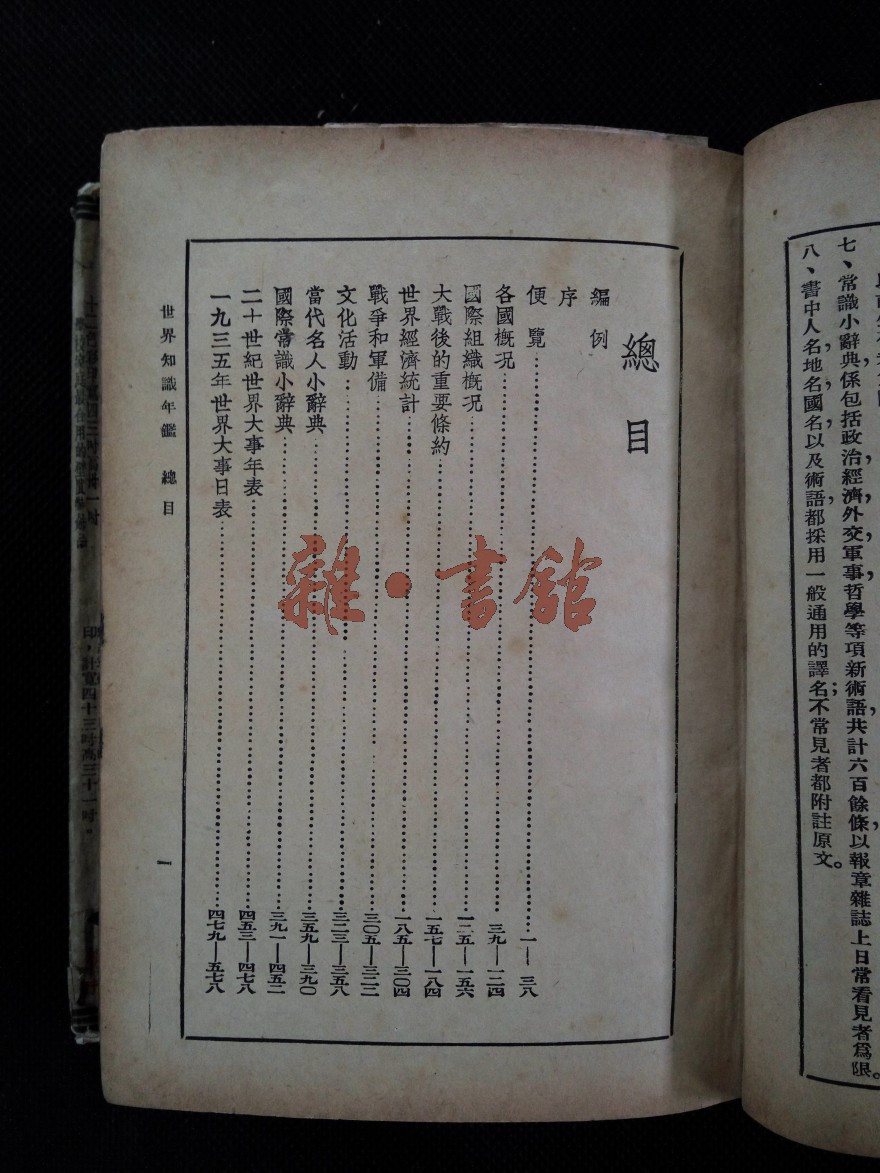 七、常識小辭典係包括政治，經濟，外交，軍事，哲學等項新術語，共計六百餘條，以報章雜誌上日常看見者爲限。
八、書中人名，地名，國名，以及術語，都採用一般通用的譯名；不常見者都附註原文。
總目
編例
序
便覽……一—三八
各國概況……三九—一二四
國際組織概況……一二五—一五六
大戰後的重要條約……一五七—一八四
世界經濟統計……一八五—三〇四
戰爭和軍備……三〇五—三二二
文化活動……三二三—三五八
當代名人小辭典……三五九—三九〇
國際常識小辭典……三九一—四五二
二十世紀世界大事年表……四五三—四七八
一九三五年世界大事日表……四七九—五七八
世界知識年鑑 總目 一
印，計寬四十三吋高三十一吋。
雜·書館